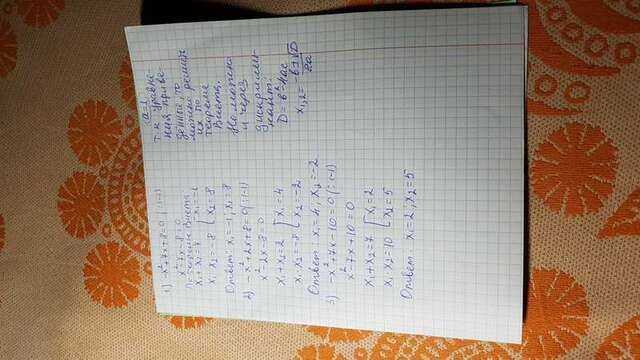 1) -x²+7x+8=0 |:(-1)
x²-7x-8=0
По теореме Виета
x₁+x₂=7 [x₁=-1
x₁·x₂=-8 [x₂=8
Ответ: x₁=-1, x₂=8
2) -x²+2x+8=0 |:(-1)
x²-2x-8=0
x₁+x₂=2 [x₁=4
x₁·x₂=-8 [x₂=-2
Ответ: x₁=4, x₂=-2
3) -x²+7x-10=0 |:(-1)
x²-7x+10=0
x₁+x₂=7 [x₁=2
x₁·x₂=10 [x₂=5
Ответ: x₁=2; x₂=5
a=1
т.к уравне-
ния приве-
дённые, то
можно решить
их по
теореме
Виета.
Но можно
и через
дискрими-
нант:
D=b²-4ac
x₁,₂=-b±√D/2a